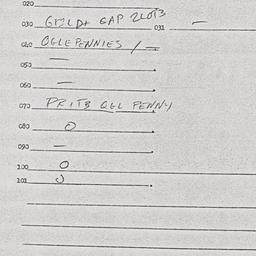 020
030 GOLD+ GAP 2LOTS 031 -
040 OGLEPENNIES / =
050 —
060 —
070 PRITB OGL PENNY
080 O
090 —
100 O
101 O